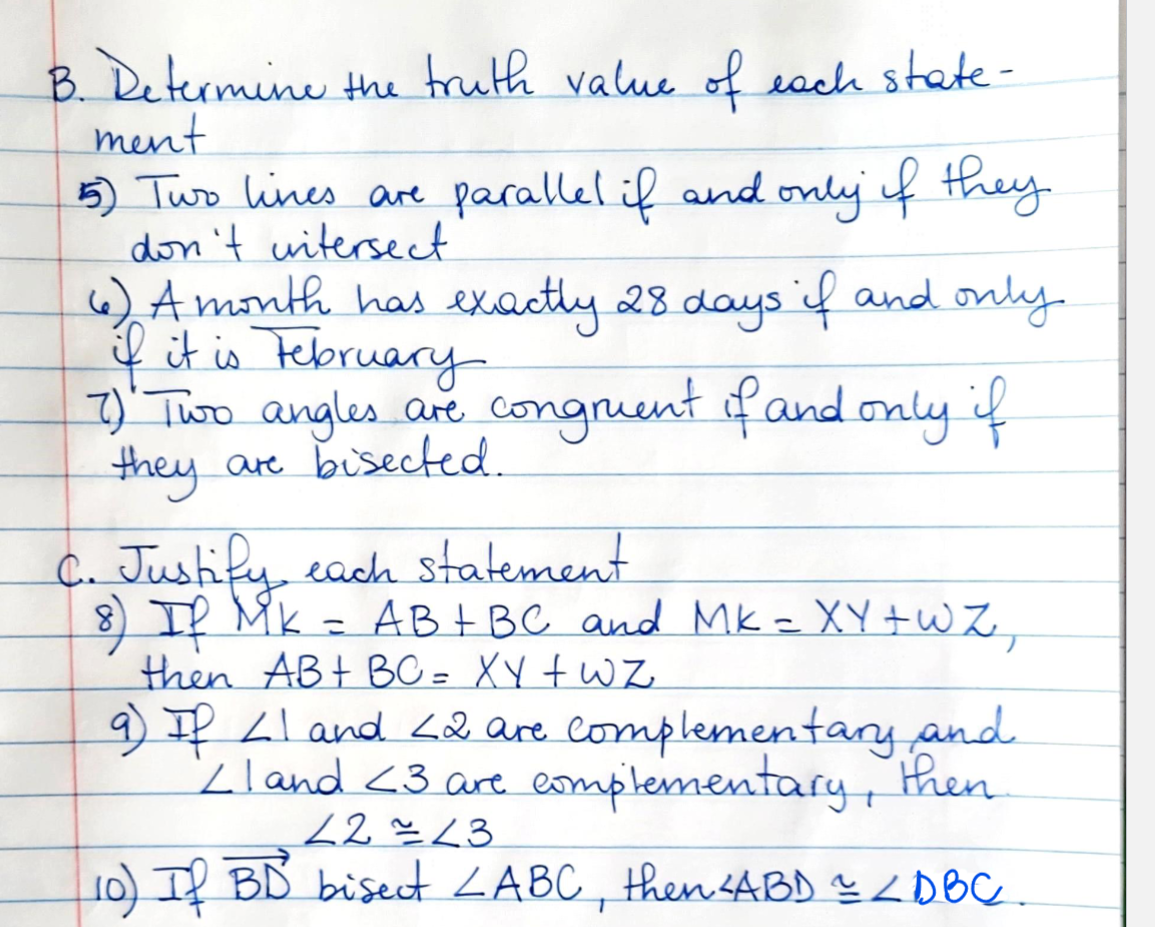 B. Determine the truth value of each state-
ment
5) Two lines are parallel if and only if they
don't intersect
6) A month has exactly 28 days if and only
if it is February
7) Two angles are congruent if and only if
they are bisected.
C. Justify each statement
8) If MK = AB + BC and MK = XY + WZ,
then AB + BC = XY + WZ
9) If ∠1 and ∠2 are complementary and
∠1 and ∠3 are complementary, then
∠2 ≅ ∠3
10) If $\overrightarrow{BD}$ bisect ∠ABC, then ∠ABD ≅ ∠DBC.